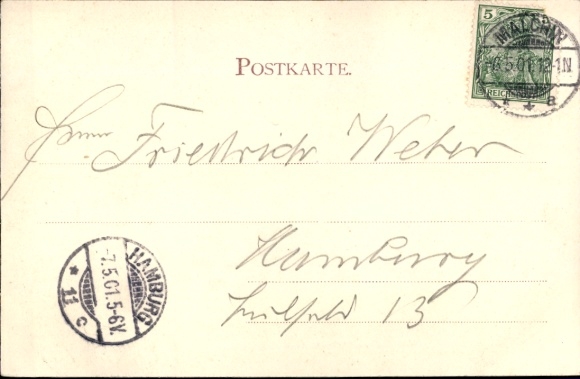 5
REICH
MALCHIN
6.5.01.12-1N
a
POSTKARTE.
Herrn Friedrich Weber
Hamburg
13
HAMBURG
7.5.01.5-6V.
* 11 c